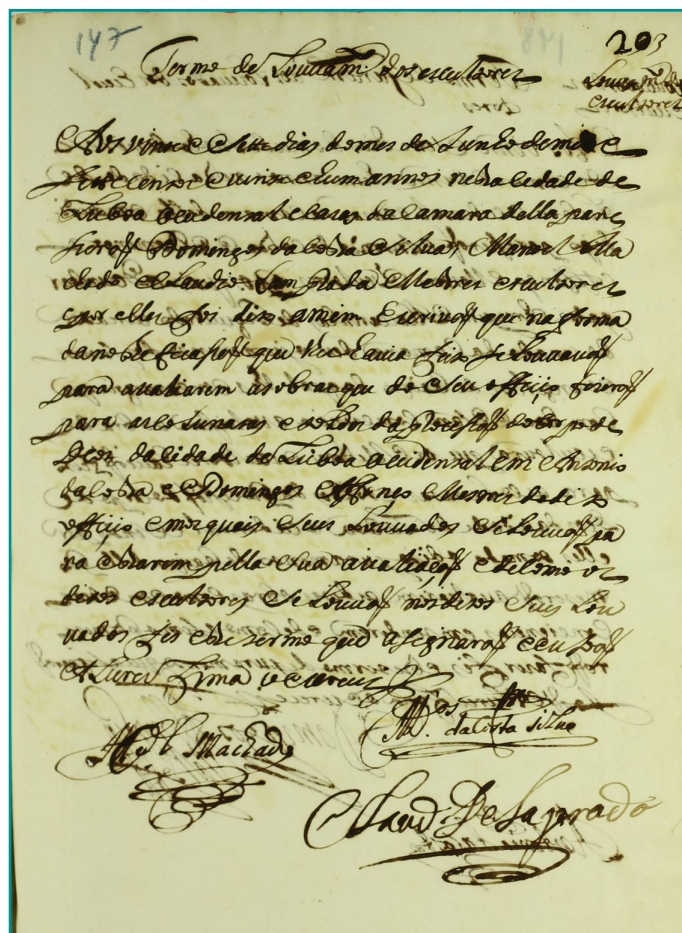 147
203
Termo de Louuam.to dos escultores
Louuam.to dos
escultores
Aos vinte e Sete dias do mes de Junho de mil e
settecentos e vinte e hum annos nesta Cidade de
Lisboa occidental e casas da Camara della pare
seroão Domingos da Costa e Silua, Manoel Ma
chado e Claudio Laprada Mestres escultores
e por elles foi dito a mim escriuão que na forma
da notificação que lhe hauia feito se Louuauão
para aualiarem as obras que de seu officio fizerão
para as Colunatas e da Procissão do Corpo de
Deos da Cidade de Lisboa occidental em Antonio
da Costa e Domingos Mestres do dito
officio e nos quais Seus Louuados se Louuão pa
ra estarem pella Sua aualiação e de como os
ditos escultores se Louuão nos ditos Seus Lou
uados fis este termo que asignarão e eu João
Alures Lima o escreui
M.el Machado
D.os da Costa Silua
Claud. De Laprado